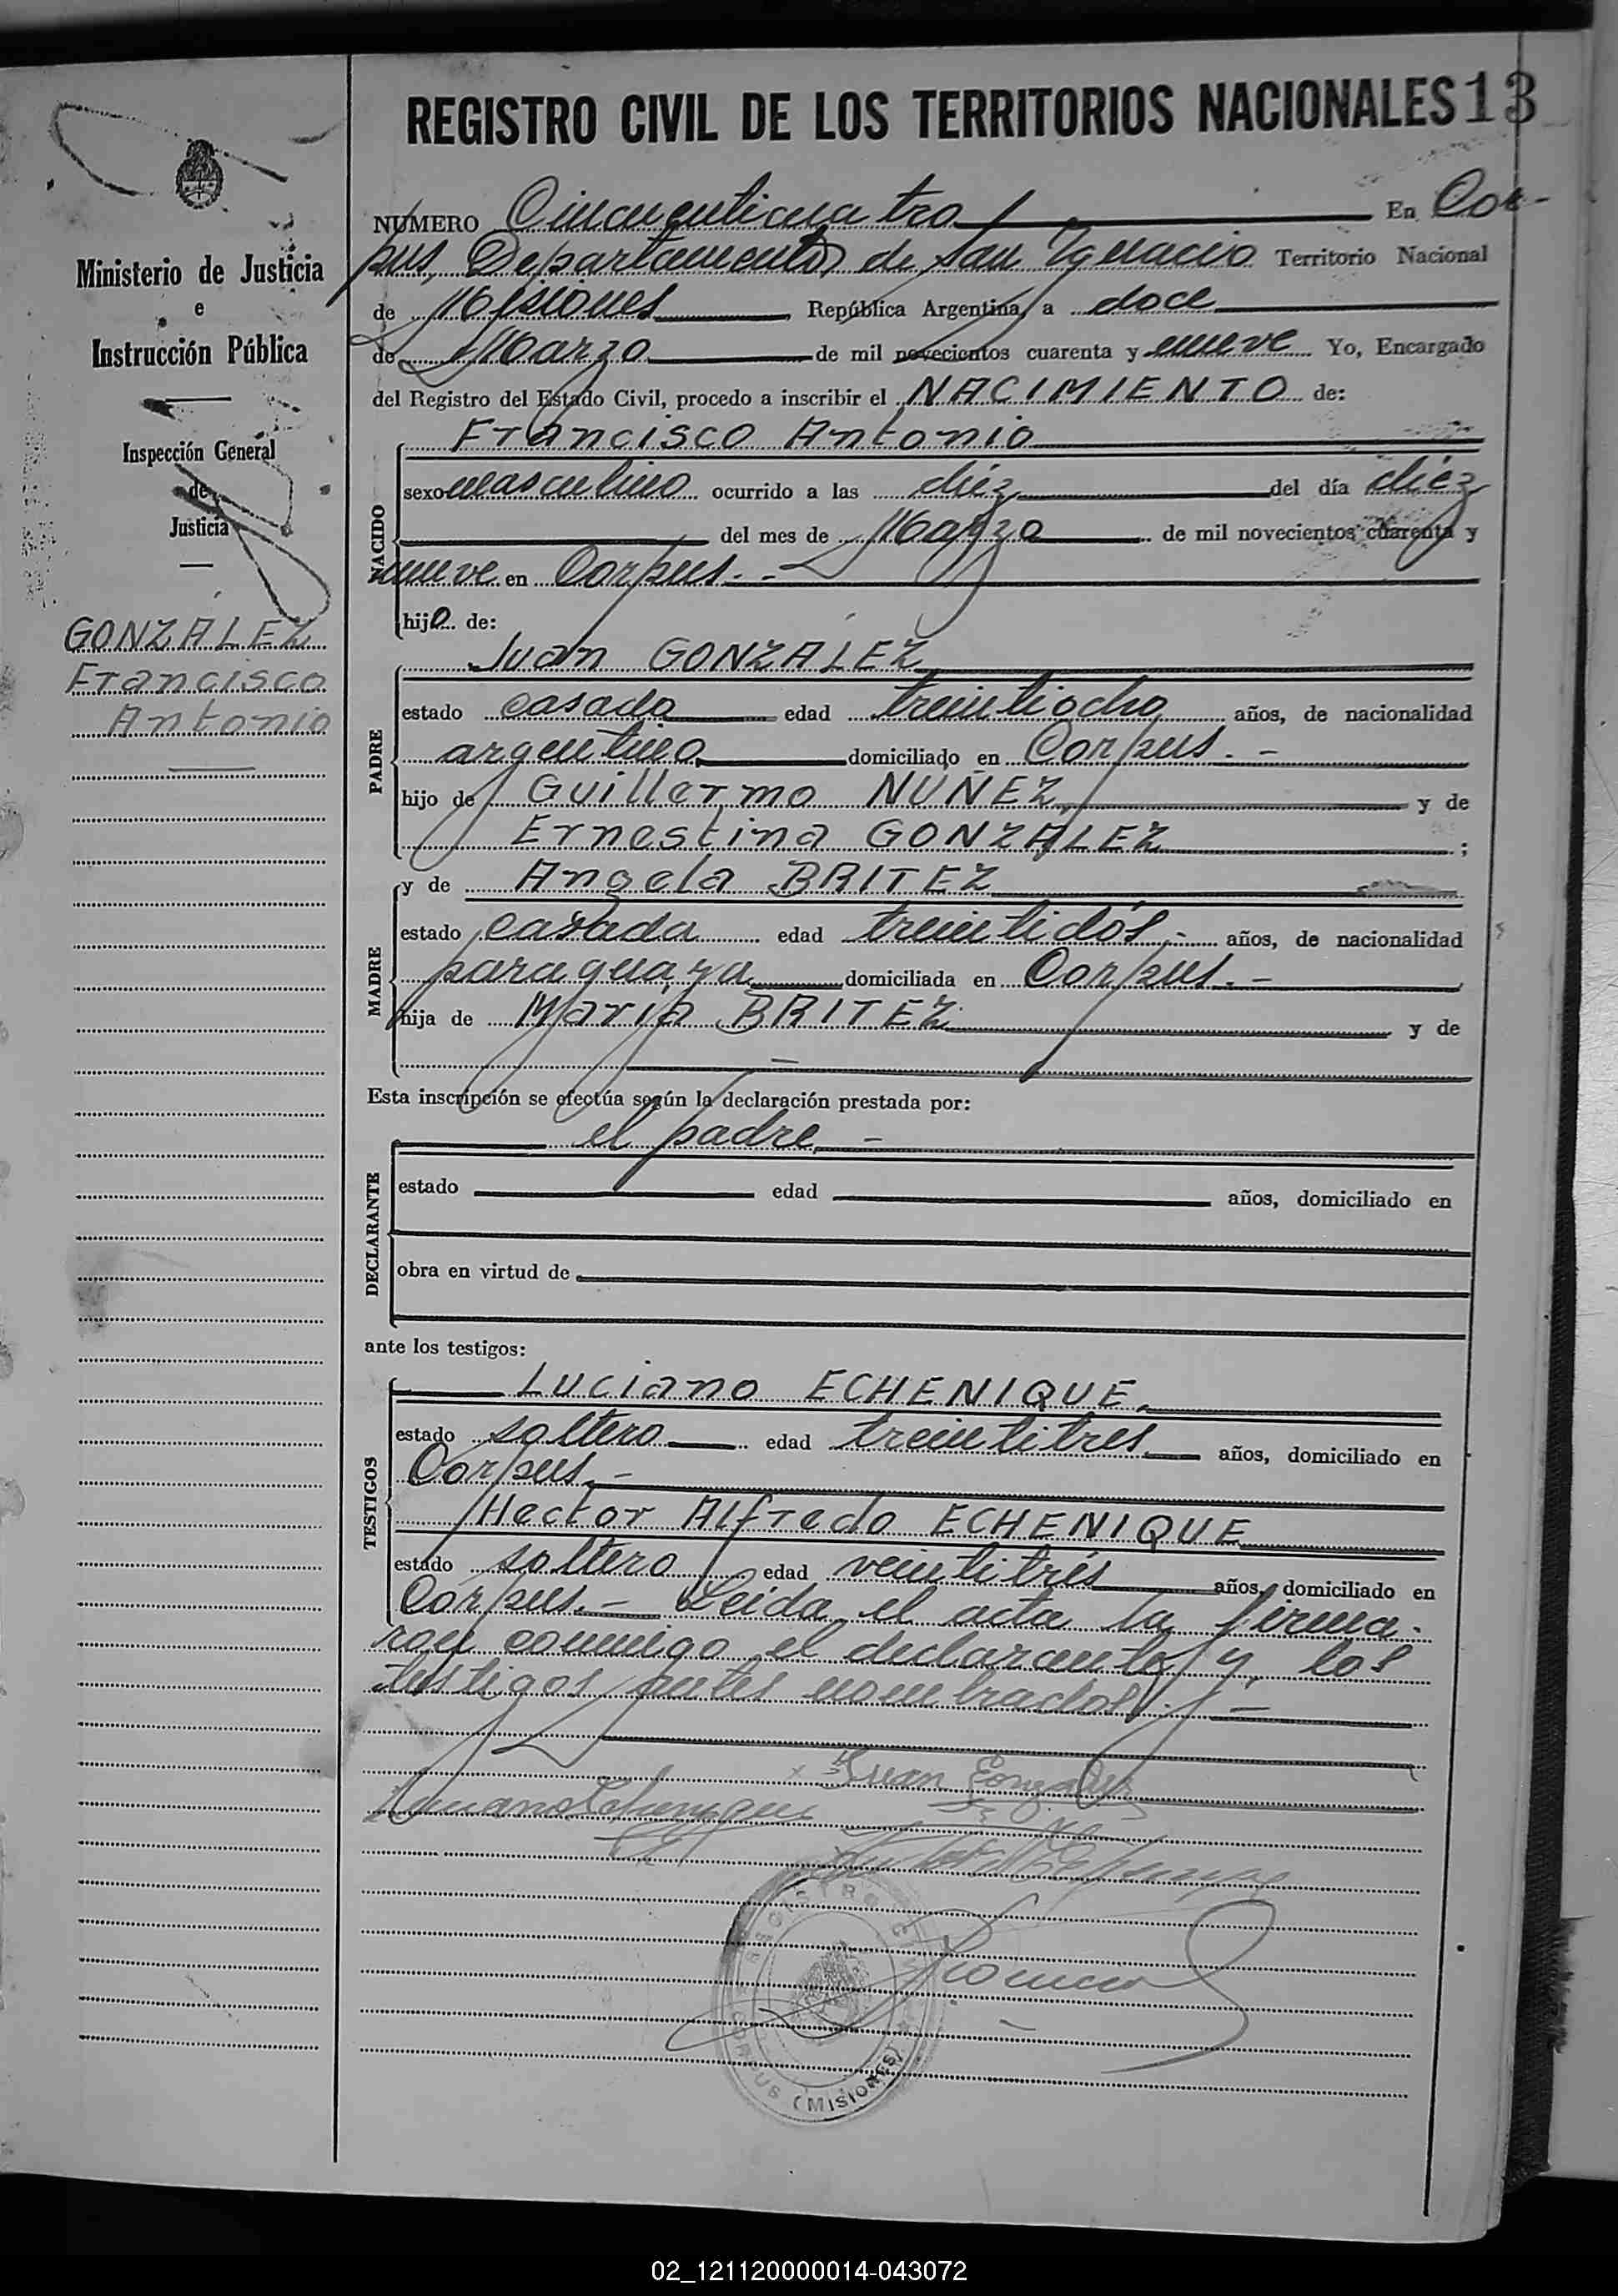 REGISTRO CIVIL DE LOS TERRITORIOS NACIONALES 13
Ministerio de Justicia
e
Instrucción Pública
Inspección General
de
Justicia
GONZALEZ
Francisco
Antonio
NUMERO Cincuenticuatro En Cor-
pus, Departamento de San Ygnacio Territorio Nacional
de Misiones República Argentina, a doce
de Marzo de mil novecientos cuarenta y nueve Yo, Encargado
del Registro del Estado Civil, procedo a inscribir el NACIMIENTO de:
NACIDO
Francisco Antonio
sexo masculino ocurrido a las diez del día diez
del mes de Marzo de mil novecientos cuarenta y
nueve en Corpus.-
hijo de:
PADRE
Juan GONZALEZ
estado casado edad treintiocho años, de nacionalidad
argentino domiciliado en Corpus.-
hijo de Guillermo NUÑEZ y de
Ernestina GONZÁLEZ ;
MADRE
y de Angela BRITEZ
estado casada edad treintidós.- años, de nacionalidad
paraguaya domiciliada en Corpus.-
hija de María BRITEZ y de
—
Esta inscripción se efectúa según la declaración prestada por:
DECLARANTE
el padre.-
estado edad años, domiciliado en
obra en virtud de
ante los testigos:
TESTIGOS
Luciano ECHENIQUE.
estado soltero edad treintitres años, domiciliado en
Corpus.-
Hector Alfredo ECHENIQUE
estado soltero edad veintitrés años, domiciliado en
Corpus.- Leida el acta la firma-
ron conmigo el declarante y los
testigos antes nombrados.-
x Juan Gonzalez
Luciano Echenique
REGISTRO CIVIL
CORPUS (MISIONES)
02_121120000014-043072